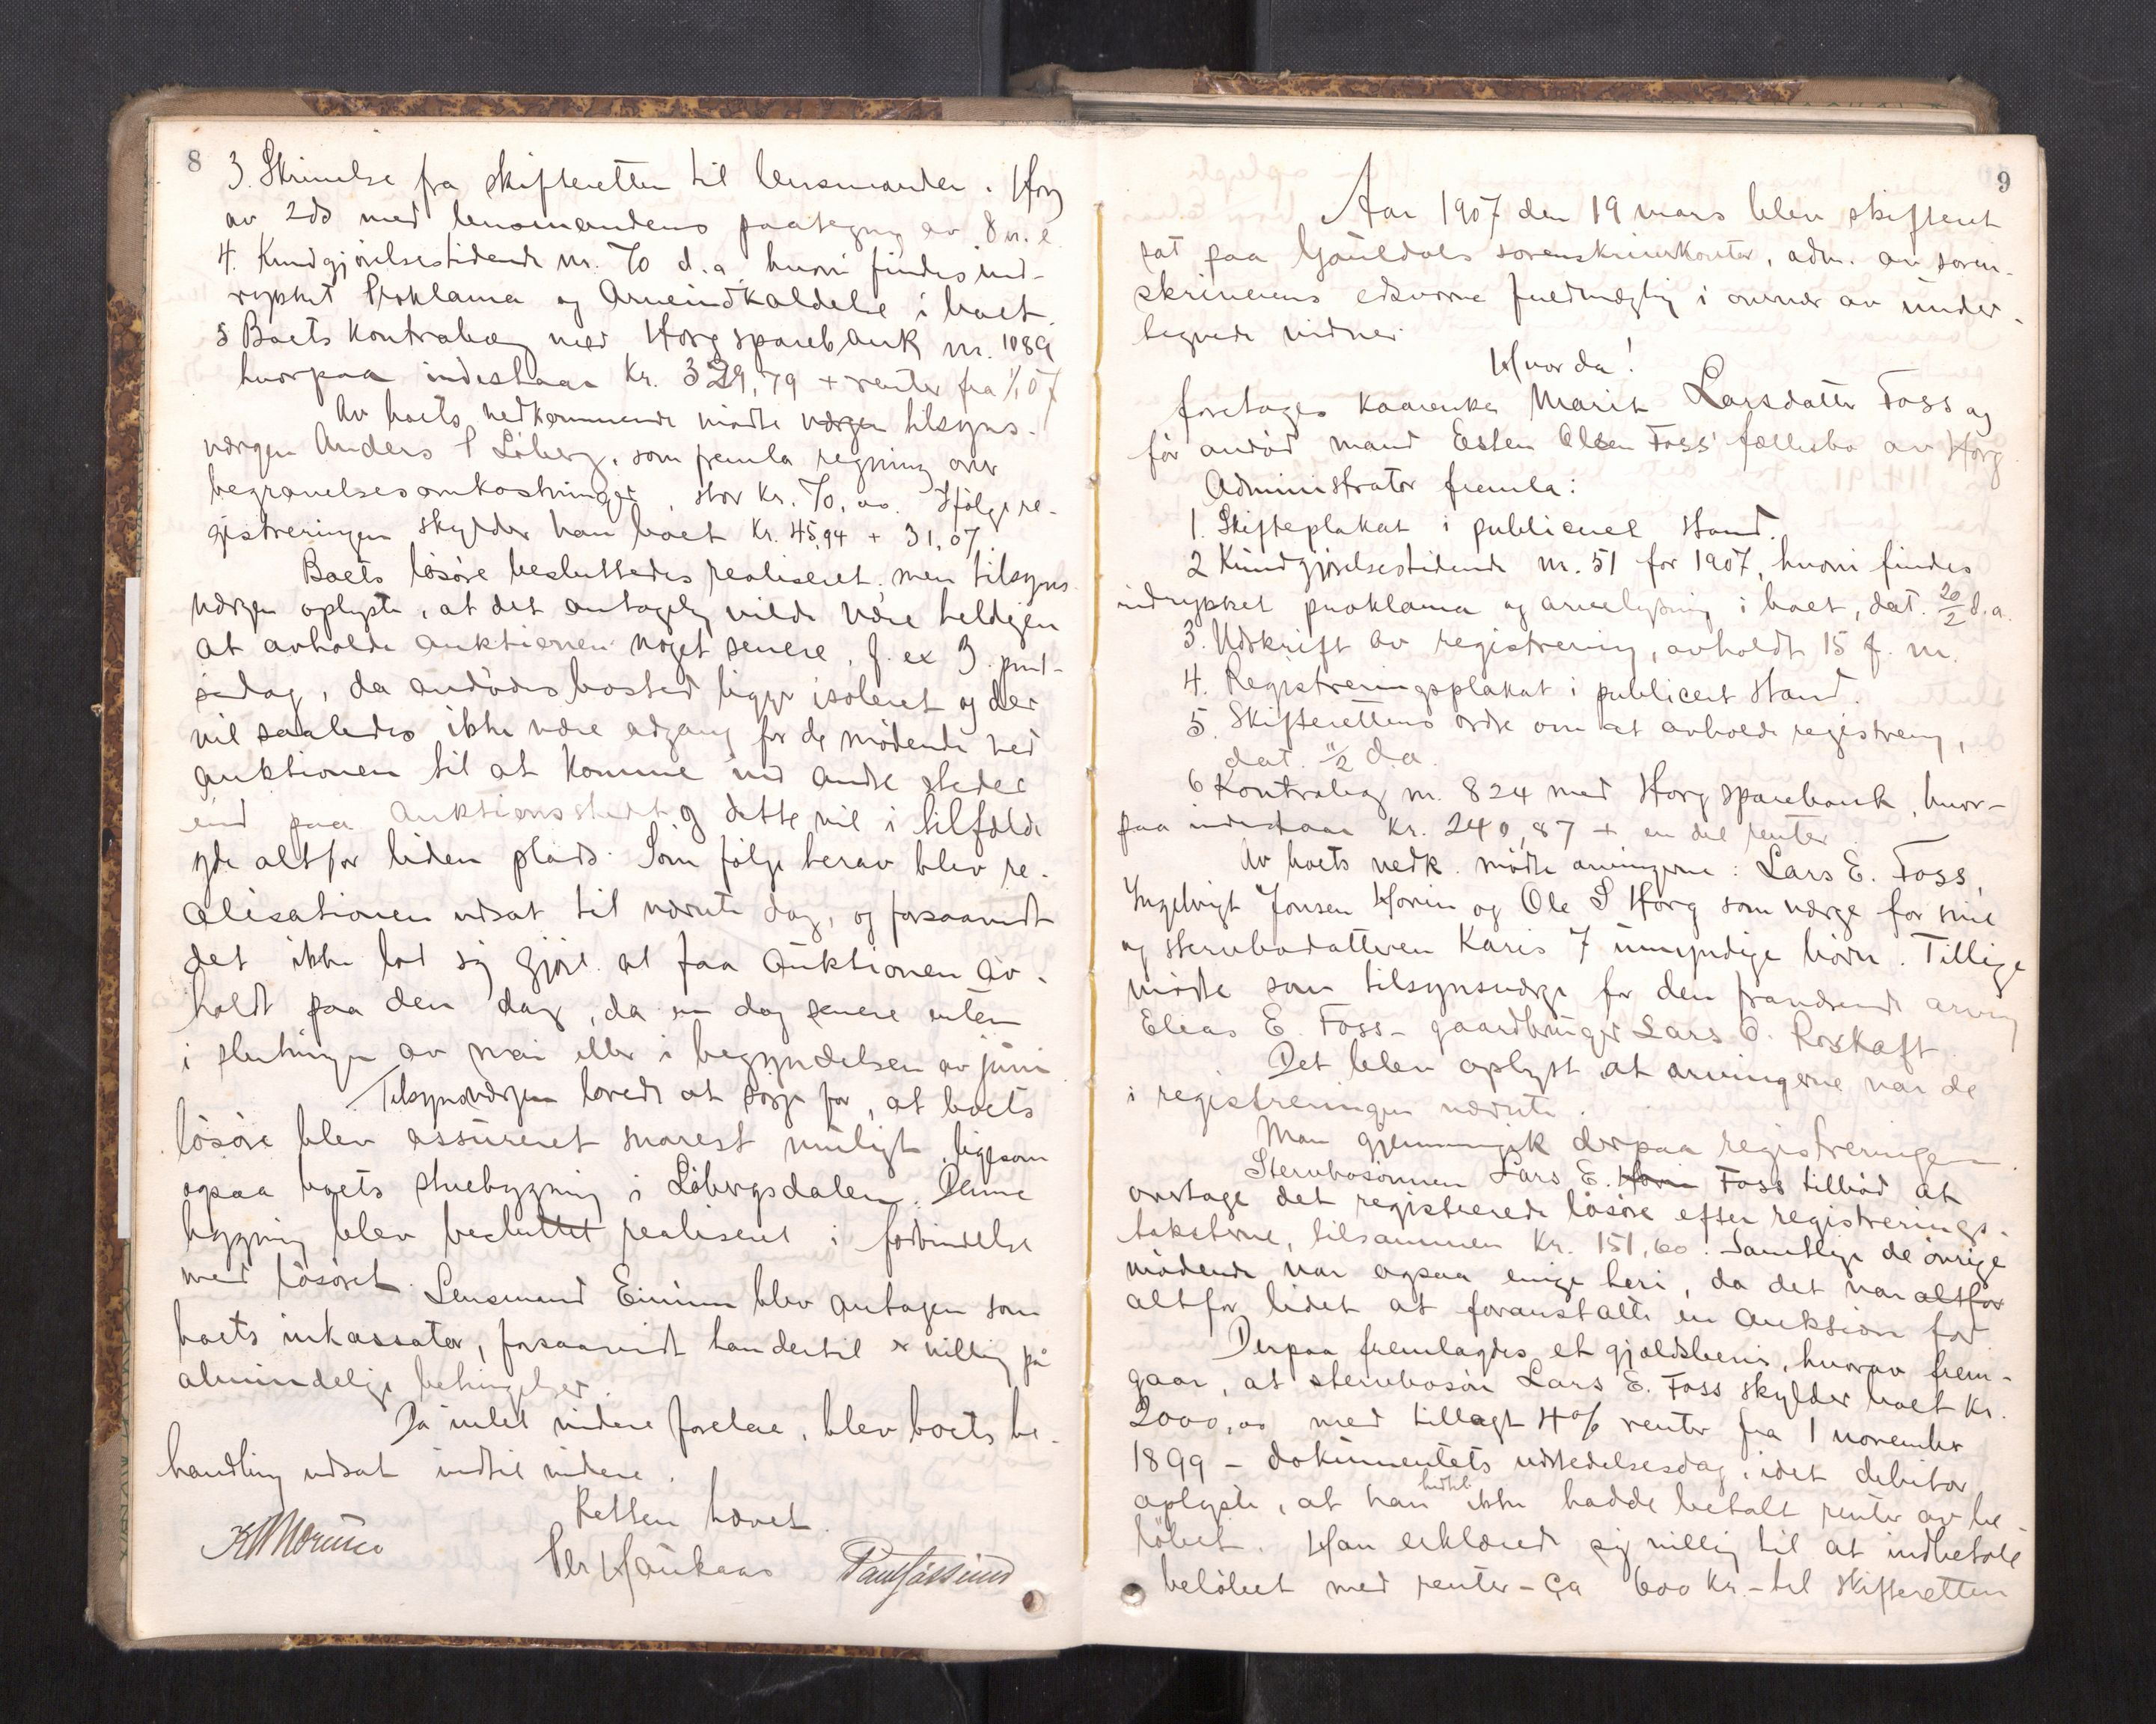 8
3. Skrivelse fra skifteretten til lensmanden i Horg
av 2ds med lensmandens paategning av 8 n. e.
4. Kundgjörelsestidende nr. 70 d.a. hvori findes ind-
rykket Proklama og Arveindkaldelse i boet.
5 Boets Kontrabog med Horg sparebank nr. 1089
hvorpaa indestaar Kr. 329,79 + renter fa 1/1 07
Av boets vedkommende mödte værgen tilsyns-
værgen Anders P Löberg, som fremla regning over
begravelsesomkostninger, stor kr. 70,00. Ifölge re-
gistreringen skylder han boet Kr. 45,94 + 31,07
Boets lösöre besluttedes realiseret, men tilsyns
værgen oplyste, at det antagelig vilde være heldigen
at avholde auktionen noget senere, f. ex 3. pint-
sedag, da avdödes bosted ligger isoleret og der
vil saaledes ikke være adgang for de mödende ved
auktionen til at komme ind andre steder
end paa auktionsstedet og dette vil i tilfælde
yde altfor liden plads. Som fölge herav blev re-
alisationen udsat til nævnte dag, og forsaavidt
det ikke lod sig gjöre at faa auktionen av-
holdt paa den dag, da en dag senere enten
i slutningen av mai eller i begyndelsen av juni
Tilsynsværgen lovede at sörge for, at boets
lösöre blev assureret snarest muligt, ligesom
ogsaa boets stuebygning i Löbergsdalen. Denne
bygning blev besluttet realiseret i forbindelse
med lösöret. Lensmand Einum blev antagen som
boets inkassator, forsaavidt han dertil er villig på
almindelige betingelser.
Da intet videre forelaa, blev boets be-
handling udsat indtil videre.
Retten hævet.
Per Haukaas Paul Gåssund
9
Aar 1907 den 19 mars blev skifteret
sat paa Gauldals sorenskriverkontor, adm. av soren-
skriverens edsvorne fuldmægtig i overvær av under-
tegnede vidner.
Hvorda!
foretoges kaarenke Marit Larsdatter Foss og
før avdöd mand Esten Olsen Foss' fællesbo av Horg
Administrator fremla:
1. Skifteplakat i publiceret stand.
2 Kundgjörelsestidende nr. 51 for 1907, hvori findes
indrykket proklama og arvelysning i boet, dat. 20/2 d.a.
3. Udskrift av registrering, avholdt 15 f. m.
4. Registreringsplakat i publicert stand.
5. Skifterettens ordre om at avholde registrering,
dat. 11/2 d.a.
6 Kontrabog nr. 824 med Horg sparebank, hvor-
paa indestaar Kr. 240,87 + en del renter
Av boets vedk. mödte arvingerne: Lars E. Foss,
Ingebrigt Jonsen Hovin og Ole S Horg som værge for sine
og stervbodatteren Karis 7 umyndige börn. Tillige
mödte som tilsynsværge for den fraværende arving
Elias E. Foss - gaardbruger Lars O. Roskaft.
Det blev oplyst at arvingerne var de
i registreringen nævnte.
Man gjennemgik derpaa registreringen.
Stervbosönnen Lars E. Hovin Foss tilböd at
overtage det registrerede lösöre efter registrerings-
taksterne, tilsammen Kr. 151,60. Samtlige de övrige
mödende var ogsaa enige heri, da det var altfor
altfor lidet at foranstalte en auktion for
Derpaa fremlagdes et gjældsbevis, hvorav frem-
gaar, at stervbosön Lars E. Foss skylder boet Kr.
2000,00 med tillagt 4% renter fra 1 november
1899 - dokumentets udstedelsesdag, idet debitor
oplyste, at han hidtil ikke hadde betalt renter av be-
löbet. Han erklærede sig villig til at indbetale
belöbet med renter - ca 600 kr. - til skifteretten